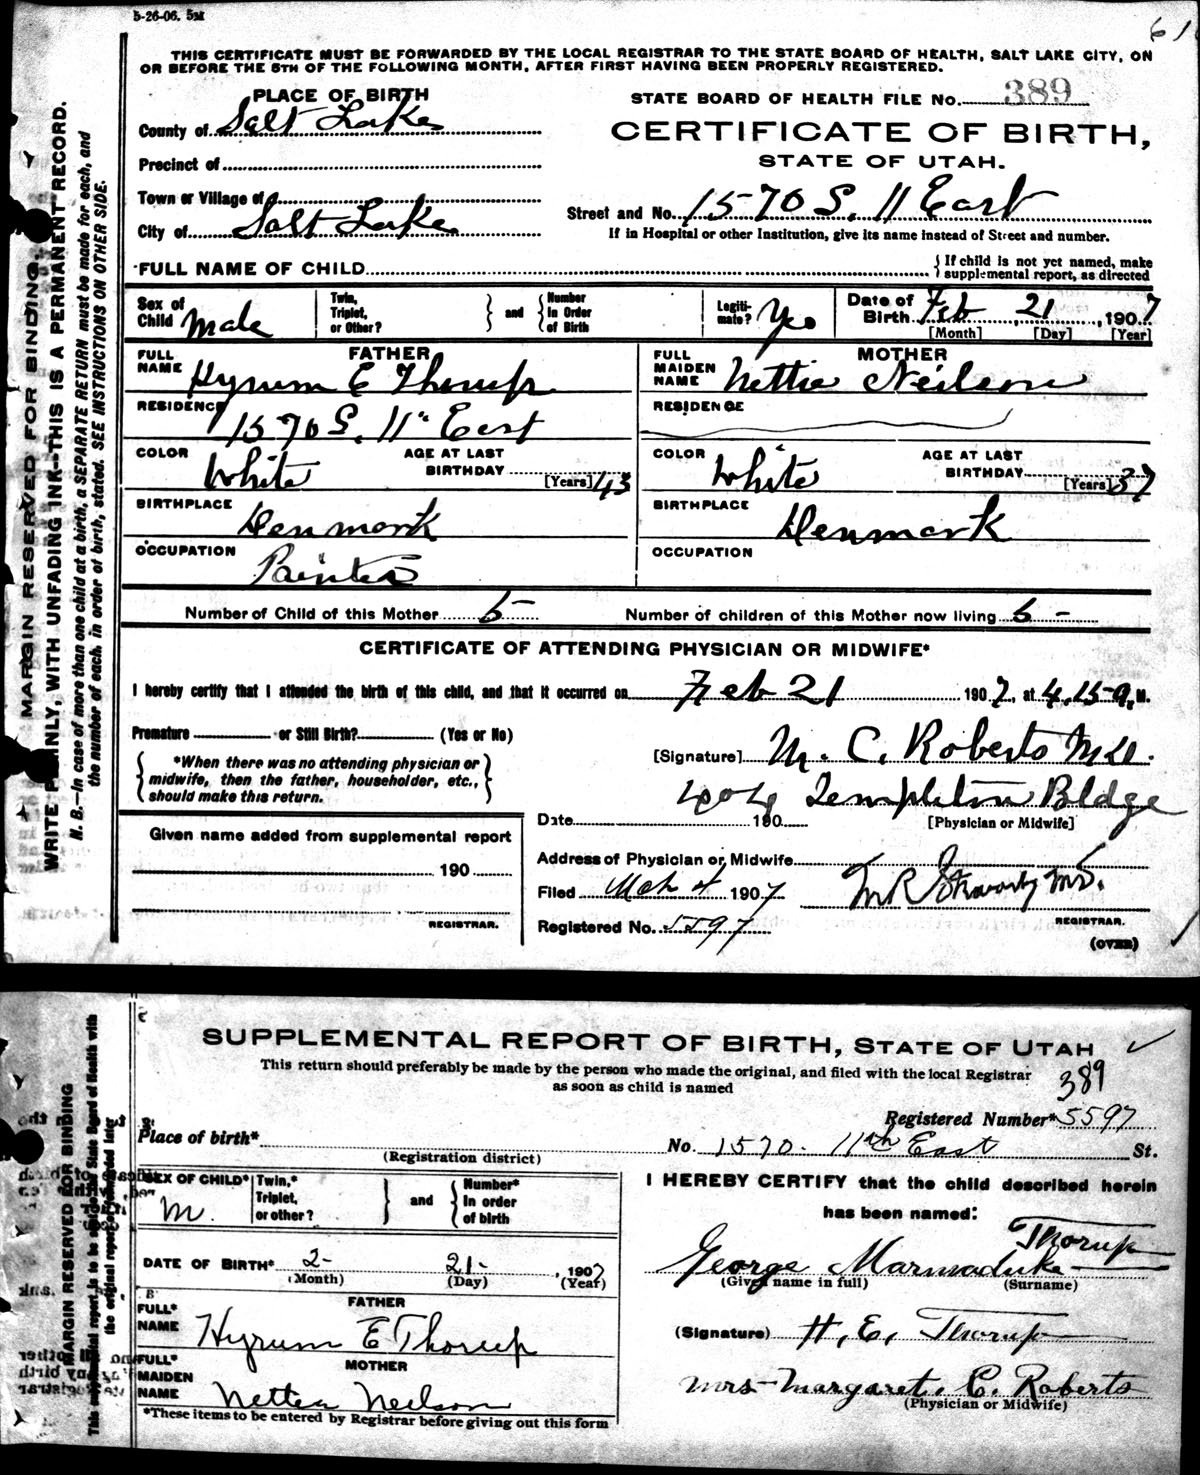 5-26-06. 5M
61
THIS CERTIFICATE MUST BE FORWARDED BY THE LOCAL REGISTRAR TO THE STATE BOARD OF HEALTH, SALT LAKE CITY, ON
OR BEFORE THE 5TH OF THE FOLLOWING MONTH, AFTER FIRST HAVING BEEN PROPERLY REGISTERED.
MARGIN RESERVED FOR BINDING.
WRITE PLAINLY, WITH UNFADING INK—THIS IS A PERMANENT RECORD.
N. B.—In case of more than one child at a birth, a SEPARATE RETURN must be made for each, and
the number of each, in order of birth, stated. SEE INSTRUCTIONS ON OTHER SIDE.
PLACE OF BIRTH
County of Salt Lake
Precinct of
Town or Village of
City of Salt Lake
STATE BOARD OF HEALTH FILE No. 389
CERTIFICATE OF BIRTH,
STATE OF UTAH.
Street and No. 1570 S. 11 East
If in Hospital or other Institution, give its name instead of Street and number.
FULL NAME OF CHILD
{ If child is not yet named, make
supplemental report, as directed
Sex of Child Male
Twin, Triplet, or Other? } and { Number in Order of Birth
Legitimate? Yes
Date of Birth Feb, 21, 1907
[Month] [Day] [Year]
FATHER
FULL NAME Hyrum E Thorup
RESIDENCE 1570 S. 11" East
COLOR White
AGE AT LAST BIRTHDAY 43 [Years]
BIRTHPLACE Denmark
OCCUPATION Painter
MOTHER
FULL MAIDEN NAME Nettie Neilson
RESIDENCE
COLOR White
AGE AT LAST BIRTHDAY 37 [Years]
BIRTHPLACE Denmark
OCCUPATION
Number of Child of this Mother 5- Number of children of this Mother now living 5-
CERTIFICATE OF ATTENDING PHYSICIAN OR MIDWIFE*
I hereby certify that I attended the birth of this child, and that it occurred on Feb 21 1907, at 4.15 a, M.
Premature or Still Birth? (Yes or No)
{ *When there was no attending physician or
midwife, then the father, householder, etc.,
should make this return. }
[Signature] M. C. Roberts MD.
404 Templeton Bldge
Date 190
[Physician or Midwife]
Given name added from supplemental report
190
REGISTRAR.
Address of Physician or Midwife
Filed Mch 4 1907
REGISTRAR.
Registered No. 5597
(OVER)
SUPPLEMENTAL REPORT OF BIRTH, STATE OF UTAH
This return should preferably be made by the person who made the original, and filed with the local Registrar
as soon as child is named
389
Registered Number* 5597
MARGIN RESERVED FOR BINDING
Place of birth* No. 1570. 11th East St.
(Registration district)
SEX OF CHILD* M.
Twin,* Triplet, or other? } and { Number* In order of birth
DATE OF BIRTH* 2- 21- , 1907
(Month) (Day) (Year)
FATHER
FULL* NAME Hyrum E Thorup
MOTHER
FULL* MAIDEN NAME Nettea Neilson
*These items to be entered by Registrar before giving out this form
I HEREBY CERTIFY that the child described herein
has been named:
George Marmaduke Thorup
(Given name in full) (Surname)
(Signature) H. E. Thorup
Mrs Margaret. C. Roberts
(Physician or Midwife)